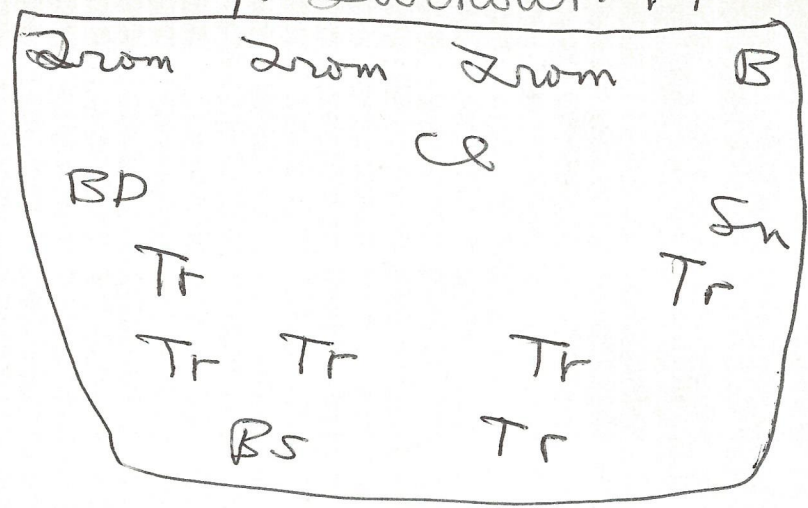 Trom Trom Trom B
Cl
BD
Sn
Tr Tr
Tr Tr Tr
Bs Tr